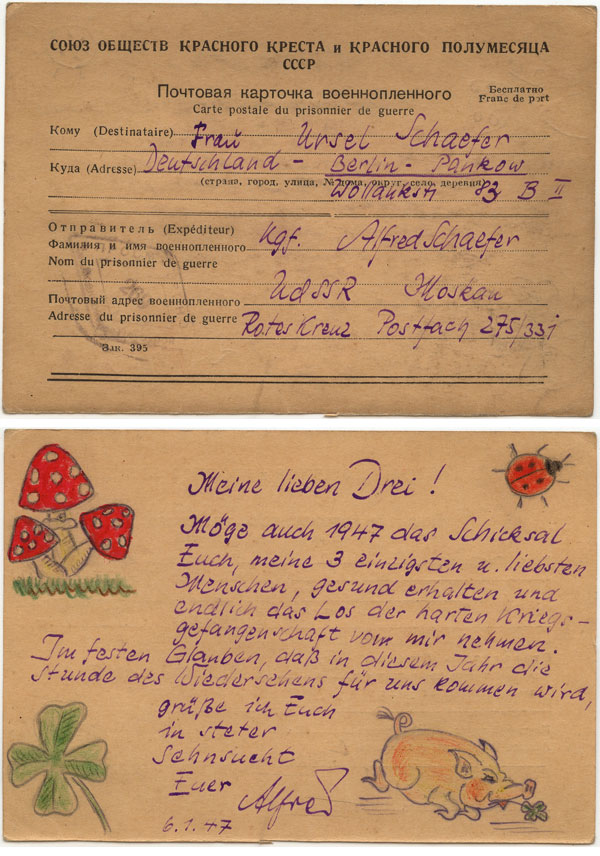 СОЮЗ ОБЩЕСТВ КРАСНОГО КРЕСТА и КРАСНОГО ПОЛУМЕСЯЦА
СССР
Почтовая карточка военнопленного
Carte postale du prisonnier de guerre
Бесплатно
Franc de port
Кому (Destinataire) Frau Ursel Schaefer
Куда (Adresse) Deutschland - Berlin - Pankow
(страна, город, улица, № дома, округ, село, деревня)
Wollankstr 83 B II
Отправитель (Expéditeur)
Фамилия и имя военнопленного Kgf. Alfred Schaefer
Nom du prisonnier de guerre
Почтовый адрес военнопленного UdSSR Moskau
Adresse du prisonnier de guerre Rotes Kreuz Postfach 275/331
Зак. 395
Meine lieben Drei!
Möge auch 1947 das Schicksal
Euch, meine 3 einzigsten u. liebsten
Menschen, gesund erhalten und
endlich das Los der harten Kriegs-
gefangenschaft vom mir nehmen.
Im festen Glauben, daß in diesem Jahr die
Stunde des Wiedersehens für uns kommen wird,
grüße ich Euch
in steter
Sehnsucht
Euer Alfred
6.1.47